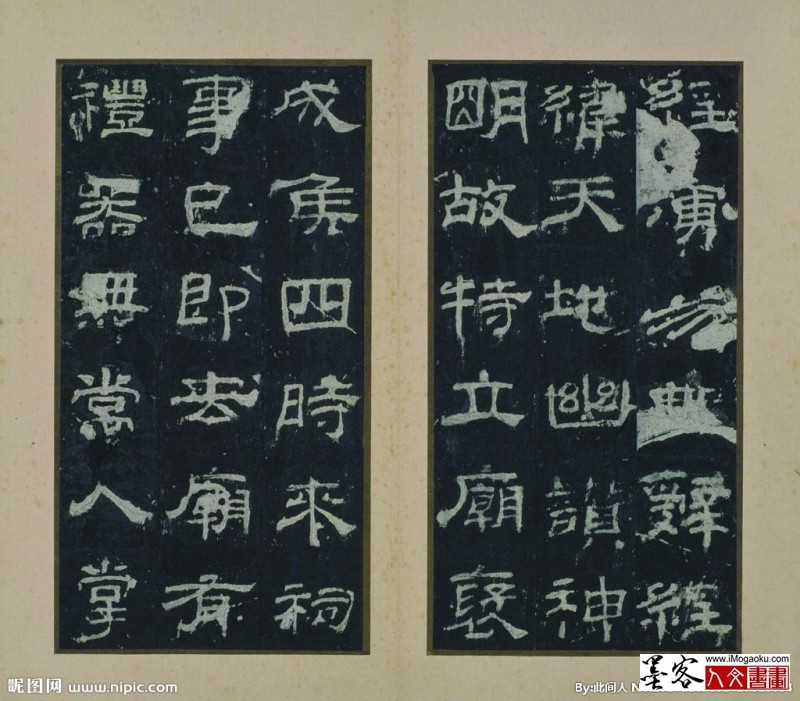 經演易繫辭經
緯天地幽讚神
明故特立廟褒
成侯四時來祠
事已即去廟有
禮器無常人掌
昵图网 www.nipic.com
By:此间人
墨客
www.iMogaoku.com
人文書畫